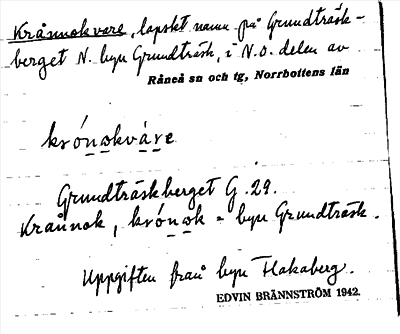 Krånnokvare, lapskt namn på Grundträsk-
berget N. byn Grundträsk, i N.O. delen av
Råneå sn och tg, Norrbottens län
krónokváre
Grundträskberget G. 29.
Krånnok, krónok = byn Grundträsk.
Uppgiften från byn Flakaberg.
EDVIN BRÄNNSTRÖM 1942.